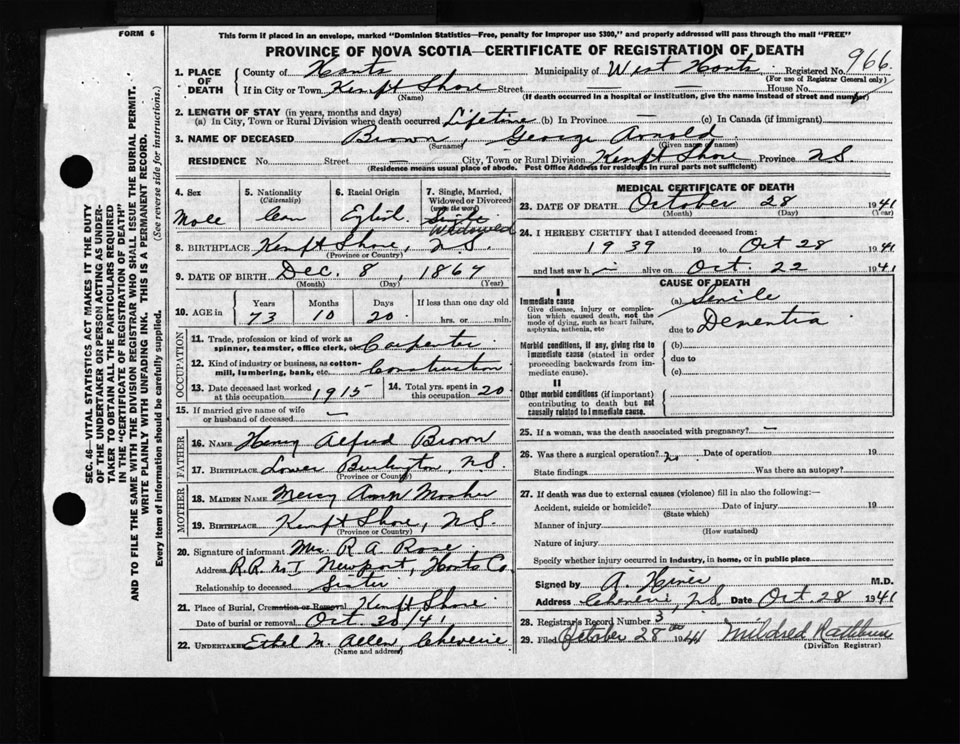 FORM 6
This form if placed in an envelope, marked "Dominion Statistics—Free, penalty for improper use $300," and properly addressed will pass through the mail "FREE"
PROVINCE OF NOVA SCOTIA—CERTIFICATE OF REGISTRATION OF DEATH
966
1. PLACE OF DEATH County of Hants Municipality of West Hants Registered No. (For use of Registrar General only)
If in City or Town Kempt Shore Street — House No. —
(Name) (If death occurred in a hospital or institution, give the name instead of street and number)
2. LENGTH OF STAY (in years, months and days)
(a) In City, Town or Rural Division where death occurred Lifetime (b) In Province — (c) In Canada (if immigrant)
3. NAME OF DECEASED Brown, George Arnold
(Surname) (Given name or names)
RESIDENCE No. Street — City, Town or Rural Division Kempt Shore Province N S
(Residence means usual place of abode. Post Office Address for residents in rural parts not sufficient)
4. Sex Male
5. Nationality (Citizenship) Can
6. Racial Origin
7. Single, Married, Widowed or Divorced (write the word) Single Widowed
8. BIRTHPLACE Kempt Shore, N.S.
(Province or Country)
9. DATE OF BIRTH Dec. 8, 1867
(Month) (Day) (Year)
10. AGE in Years Months Days If less than one day old
73 10 20 hrs. or min.
OCCUPATION
11. Trade, profession or kind of work as spinner, teamster, office clerk, etc. Carpenter
12. Kind of industry or business, as cotton mill, lumbering, bank, etc. Construction
13. Date deceased last worked at this occupation 1915
14. Total yrs. spent in this occupation 20
15. If married give name of wife or husband of deceased —
FATHER
16. NAME Henry Alfred Brown
17. BIRTHPLACE Lower Burlington, N.S.
(Province or Country)
MOTHER
18. MAIDEN NAME Mercy Ann Mosher
19. BIRTHPLACE Kempt Shore, N.S.
(Province or Country)
20. Signature of informant Mrs. R. A. Rose
Address R.R. No 1 Newport, Hants Co.
Relationship to deceased Sister
21. Place of Burial, Cremation or Removal Kempt Shore
Date of burial or removal Oct. 30/41
22. UNDERTAKER Ethel M. Allen, Cheverie
(Name and address)
MEDICAL CERTIFICATE OF DEATH
23. DATE OF DEATH October 28 1941
(Month) (Day) (Year)
24. I HEREBY CERTIFY that I attended deceased from:
1939 19 to Oct 28 1941
and last saw h i alive on Oct. 22 1941
CAUSE OF DEATH
I
Immediate cause
Give disease, injury or complication which caused death, not the mode of dying, such as heart failure, asphyxia, asthenia, etc
(a) Senile
due to Dementia
Morbid conditions, if any, giving rise to immediate cause (stated in order proceeding backwards from immediate cause).
(b)
due to
(c)
II
Other morbid conditions (if important) contributing to death but not causally related to immediate cause.
25. If a woman, was the death associated with pregnancy? —
26. Was there a surgical operation? no Date of operation 19
State findings Was there an autopsy?
27. If death was due to external causes (violence) fill in also the following:—
Accident, suicide or homicide? Date of injury 19
(State which)
Manner of injury
(How sustained)
Nature of injury
Specify whether injury occurred in industry, in home, or in public place
Signed by A. M.D.
Address Cheverie, N.S. Date Oct. 28 1941
28. Registrar's Record Number 3
29. Filed October 28th 1941 Mildred Rathburn
(Division Registrar)
SEC. 46—VITAL STATISTICS ACT MAKES IT THE DUTY
OF THE UNDERTAKER OR PERSON ACTING AS UNDERTAKER TO OBTAIN ALL THE PARTICULARS REQUIRED
IN THE "CERTIFICATE OF REGISTRATION OF DEATH"
AND TO FILE THE SAME WITH THE DIVISION REGISTRAR WHO SHALL ISSUE THE BURIAL PERMIT.
WRITE PLAINLY WITH UNFADING INK. THIS IS A PERMANENT RECORD.
Every item of information should be carefully supplied. (See reverse side for instructions.)